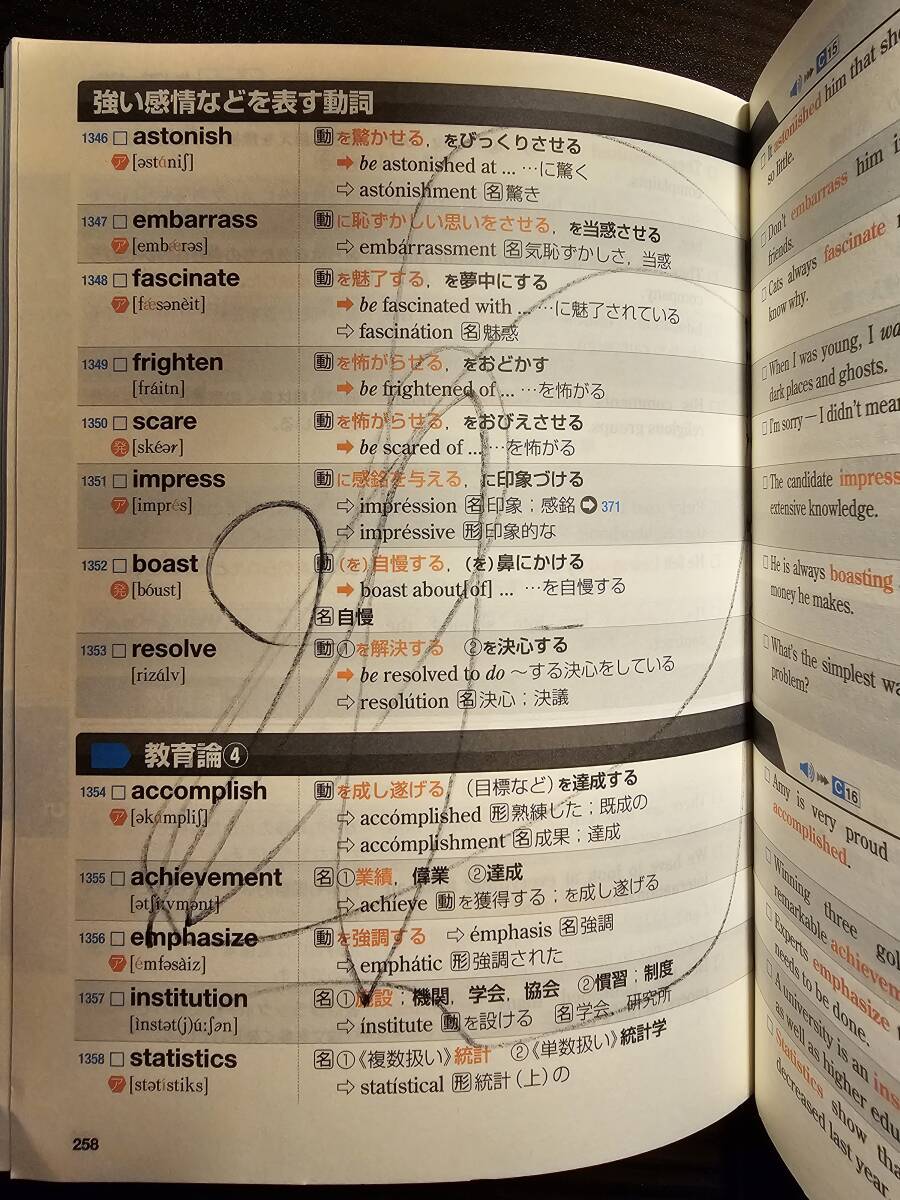 強い感情などを表す動詞
1346 □ astonish 動 を驚かせる，をびっくりさせる
ア [əstániʃ] ➡ be astonished at ... …に驚く
⇨ astónishment 名 驚き
1347 □ embarrass 動 に恥ずかしい思いをさせる，を当惑させる
ア [embǽrəs] ⇨ embárrassment 名 気恥ずかしさ，当惑
1348 □ fascinate 動 を魅了する，を夢中にする
ア [fǽsənèit] ➡ be fascinated with ... …に魅了されている
⇨ fascinátion 名 魅惑
1349 □ frighten 動 を怖がらせる，をおどかす
[fráitn] ➡ be frightened of ... …を怖がる
1350 □ scare 動 を怖がらせる，をおびえさせる
発 [skéər] ➡ be scared of ... …を怖がる
1351 □ impress 動 に感銘を与える，に印象づける
ア [imprés] ⇨ impréssion 名 印象；感銘 ➲ 371
⇨ impréssive 形 印象的な
1352 □ boast 動 (を)自慢する，(を)鼻にかける
発 [bóust] ➡ boast about[of] ... …を自慢する
名 自慢
1353 □ resolve 動 ①を解決する ②を決心する
[rizálv] ➡ be resolved to do ～する決心をしている
⇨ resolútion 名 決心；決議
教育論④
1354 □ accomplish 動 を成し遂げる，(目標など)を達成する
ア [əkámpliʃ] ⇨ accómplished 形 熟練した；既成の
⇨ accómplishment 名 成果；達成
1355 □ achievement 名 ①業績，偉業 ②達成
[ətʃíːvmənt] ⇨ achieve 動 を獲得する；を成し遂げる
1356 □ emphasize 動 を強調する ⇨ émphasis 名 強調
ア [émfəsàiz] ⇨ emphátic 形 強調された
1357 □ institution 名 ①施設；機関，学会，協会 ②慣習；制度
[ìnstət(j)úːʃən] ⇨ ínstitute 動 を設ける 名 学会，研究所
1358 □ statistics 名 ①《複数扱い》統計 ②《単数扱い》統計学
ア [stətístiks] ⇨ statístical 形 統計(上)の
258
C15
□ It astonished him that she
so little.
□ Don't embarrass him i
friends.
□ Cats always fascinate
know why.
□ When I was young, I wa
dark places and ghosts.
□ I'm sorry — I didn't mean
□ The candidate impress
extensive knowledge.
□ He is always boasting
money he makes.
□ What's the simplest wa
problem?
C16
□ Amy is very proud
accomplished.
□ Winning three gol
remarkable achievem
□ Experts emphasize t
needs to be done.
□ A university is an ins
as well as higher edu
□ Statistics show tha
decreased last year